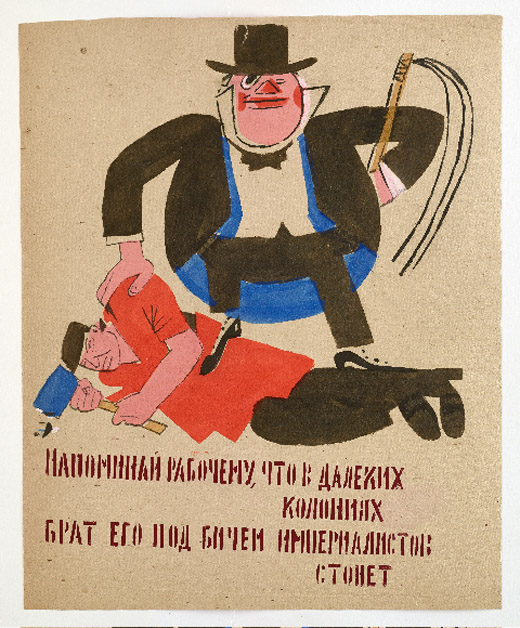 НАПОМИНАЙ РАБОЧЕМУ, ЧТО В ДАЛЕКИХ
КОЛОНИЯХ
БРАТ ЕГО ПОД БИЧЕМ ИМПЕРИАЛИСТОВ
СТОНЕТ